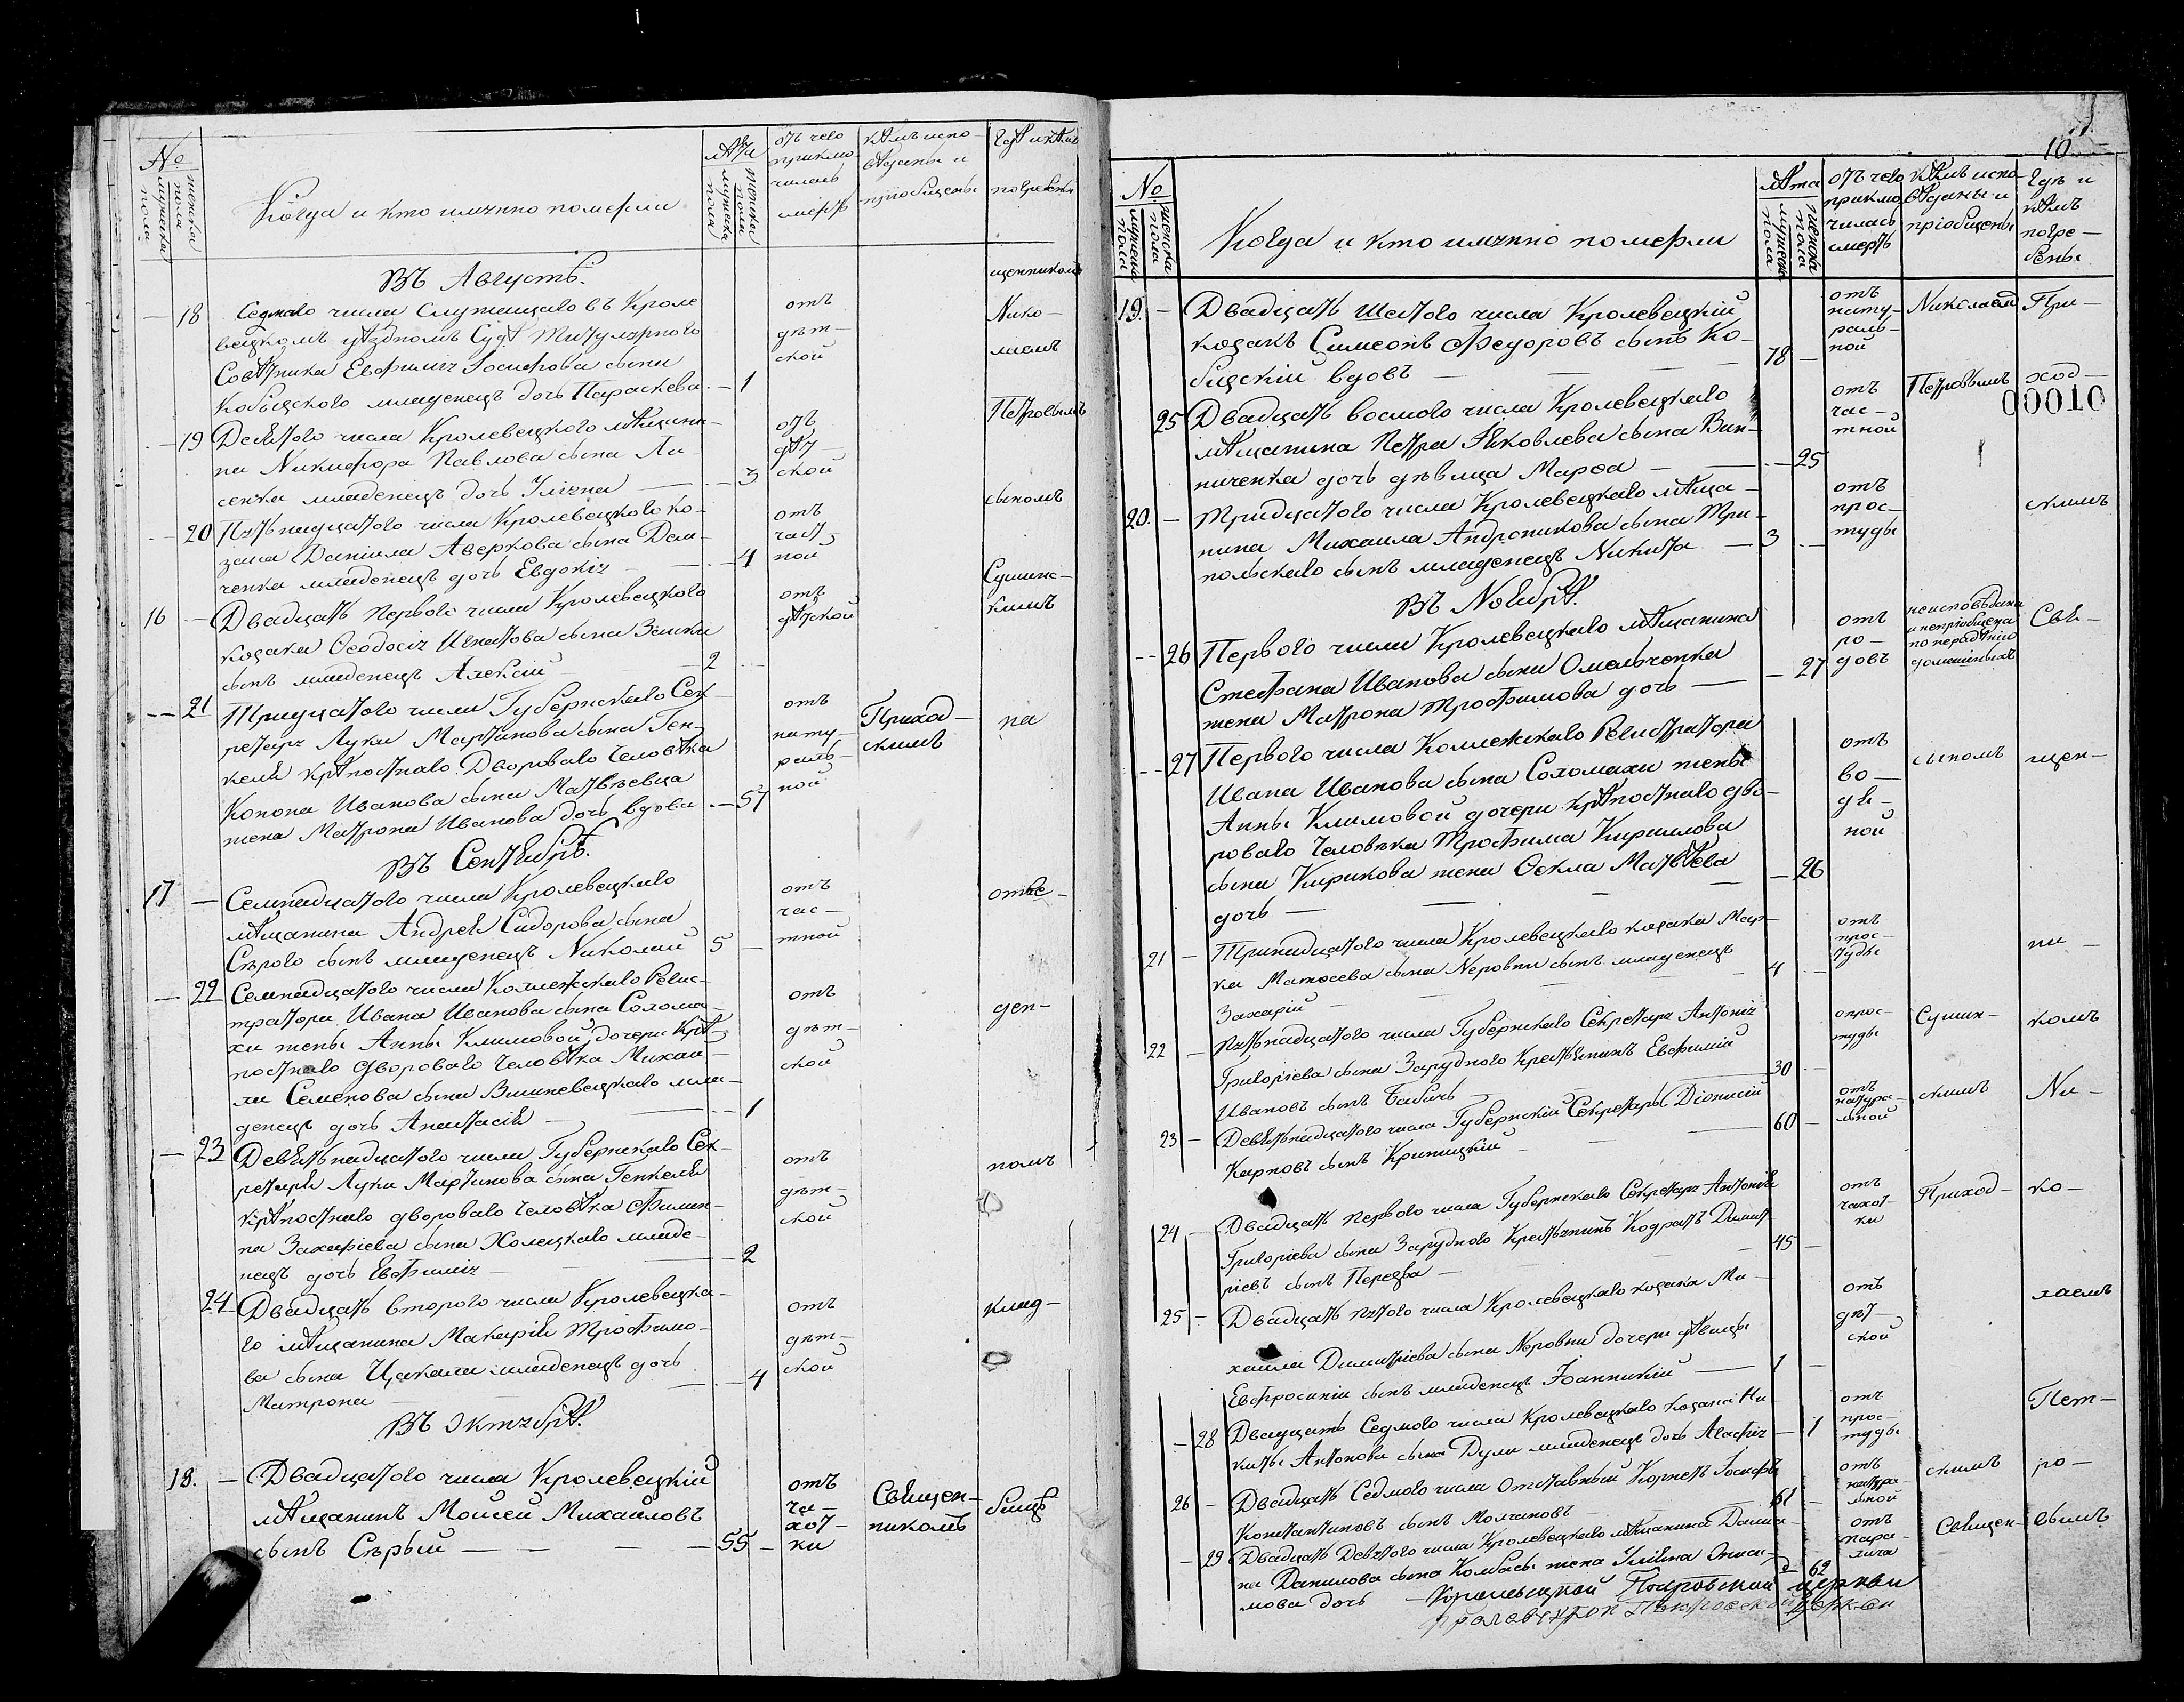 №
мужеска пола
женска пола
Когда и кто имянно померли
лѣта
мужеска пола
женска пола
отъ чего приклю-
чилась
смерть
кѣмъ испо-
вѣданы и
пріобщены
гдѣ и кѣмъ
погребены
Въ Августѣ.
щенникомъ
18 Седмаго числа Служащаго въ Кроле
вецкомъ уѣздномъ Судѣ Титулярного
Совѣтника Евфимія Іосифова сына
Кобыского младенецъ дочь Параскева — 1
отъ
дѣт-
ской
Нико-
лаемъ
19 Девятого числа Кролевецкого мѣщани-
на Никифора Павлова сына Ли-
сенка младенецъ дочь Уліяна — 3
отъ
дѣт-
ской
Петровымъ
20 Пятьнадцатого числа Кролевецкого ко-
зака Даніила Аверкова сына Дем-
ченка младенецъ дочь Евдокія — 4
отъ
част
ной
сыномъ
16 — Двадцать первого числа Кролевецкого
козака Ѳеодосія Игнатова сына Заики
сынъ младенецъ Алексій — 2
отъ
дѣтской
Сушинс-
кимъ
21 Тридцатого числа Губернскаго Сек-
ретаря Луки Мартинова сына Ген-
келя крѣпостнаго Дворового человѣка
Конона Иванова сына Матвѣевца
жена Матрона Иванова дочь вдова — 57
отъ
нату-
раль-
ной
Приход-
скимъ
на
Въ Сентябрѣ.
17 — Семнадцатого числа Кролевецкаго
мѣщанина Андрея Сидорова сына
Сѣрого сынъ младенецъ Николай 5 —
отъ
час-
тной
отве-
— 22 Семнадцатого числа Коллежскаго Регис-
тратора Ивана Иванова сына Солома-
хи жены Анны Климовой дочери крѣ-
постнаго дворового человѣка Михаи-
ла Семенова сына Вишневецкаго мла-
денецъ дочь Анастасія — 1
отъ
дѣт-
ской
ден-
— 23 Девятьнадцатого числа Губернскаго Сек-
ретаря Луки Мартинова сына Генкеля
крѣпостнаго дворового человѣка Филип-
па Захаріева сына Холецкаго младе-
нецъ дочь Евфимія — 2
отъ
дѣт-
ской
номъ
24 Двадцать второго числа Кролевецка-
го мѣщанина Макарія Трофимо-
ва сына Цакала младенецъ дочь
Матрона — 4
отъ
дѣт-
ской
клад-
Въ Октябрѣ.
18. — Двадцатого числа Кролевецкій
мѣщанинъ Моисей Михайловъ
сынъ Сѣрый — 55 —
отъ
ча-
хот-
ки
Священ-
никомъ
бищѣ
10
№
мужеска пола
женска пола
Когда и кто имянно померли
лѣта
мужеска пола
женска пола
отъ чего
приклю-
чилась
смерть
кѣмъ испо-
вѣданы и
пріобщены
Гдѣ и
кѣмъ
погре-
бены
19. — Двадцать Шестого числа Кролевецкій
козакъ Симеонъ Федоровъ сынъ Ко-
быцскій вдовъ — 78 —
отъ
нату-
раль-
ной
Николаемъ
При-
25 Двадцать восмого числа Кролевецкаго
мѣщанина Петра Яковлева сына Вин-
ниченка дочь дѣвица Марѳа — 25
отъ
час-
тной
Петровымъ
ход-
00010
20. — Тридцатого числа Кролевецкаго мѣща-
нина Михаила Андроникова сына Три-
польскаго сынъ младенецъ Никита — 3
отъ
прос-
туды
скимъ
Въ Ноябрѣ.
26 Первого числа Кролевецкаго мѣщанина
Стефана Иванова сына Омельченка
жена Матрона Трофимова дочь — 27
отъ
ро-
довъ
неисповѣдана
и непріобщена
по нерадѣнію
домашнихъ
Свя-
27 Первого числа Коллежскаго Регистратора
Ивана Иванова сына Соломахи жены
Анны Климовой дочери крѣпостнаго дво-
роваго человѣка Трофима Кириллова
сына Кирикова жена Ѳекла Матвѣева
дочь — 26
отъ
во-
дя-
ной
сыномъ
щен-
21 — Тринадцатого числа Кролевецкаго козака Мар-
ка Матѳеева сына Неровни сынъ младенецъ
Захарій — 4
отъ
прос-
туды
ни-
22 — Пятьнадцатого числа Губернскаго Секретаря Антонія
Григоріева сына Зарудного Крестьянинъ Евфимій
Ивановъ сынъ Бабичъ 30
опрос-
туды
Сушин-
комъ
23 — Девятьнадцатого числа Губернскій Секретарь Діонисій
Карповъ сынъ Криницкій 60 —
отъ
натура-
льной
скимъ
Ни-
24 — Двадцать первого числа Губернскаго Секретаря Антонія
Григоріева сына Зарудного Крестьянинъ Кодратъ Димит-
ріевъ сынъ Передва — 45 —
отъ
чахот-
ки
Приход-
ко-
25 — Двадцать пятого числа Кролевецкаго козака Ми-
хаила Димитріева сына Неровни дочери дѣвицы
Евфросиніи сынъ младенецъ Іоанникій — 1 —
отъ
дѣт-
ской
лаемъ
— 28 Двадцать Седмого числа Кролевецкаго козака Ни-
киты Антонова сына Дули младенецъ дочь Агафія — 1
отъ
прос-
туды
Пет-
26 — Двадцать Седмого числа Отставный Корнетъ Іосифъ
Константиновъ сынъ Молчановъ — 61 —
отъ
натура-
льной
скимъ
ро-
— 29 Двадцать Девятого числа Кролевецкаго мѣщанина Дамиа-
на Данилова сына Колбасы жена Уліяна Онис-
мова дочь — 62
отъ
пара-
лича
Священ-
вымъ
Кролевецкой Покровской церкви
Кролевецкой Покровской Церкви